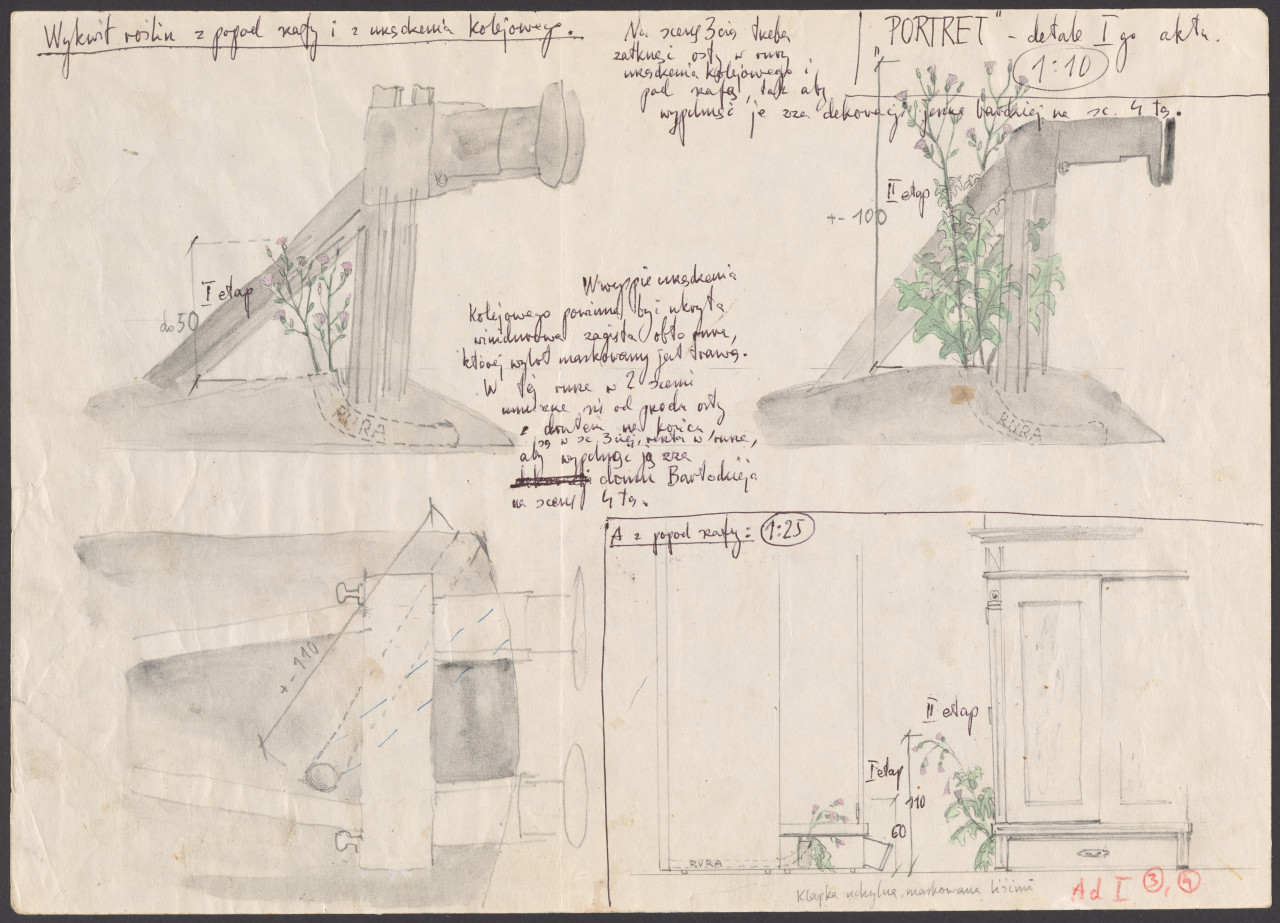 Wykwit roślin z popod szafy i z urządzenia kolejowego.
Na scenę 3cią trzeba
zatknąć osty w rurę
urządzenia kolejowego i
pod szafę, tak aby
wypchnąć je zza dekoracji jeszcze bardziej na sc. 4tą.
"PORTRET" - detale I go aktu.
1:10
I etap
do 50
RURA
II etap
+- 100
RURA
W wyspie urządzenia
Kolejowego powinna być ukryta
winidurowa zagięta obła rura,
której wylot maskowany jest trawą.
W tę rurę w 2 scenie
się od przodu osty
z drutem na końcu
w sc. 3ciej, w rurze,
aby wypchnąć ją zza
domu Bartodzieja
na scenę 4tą.
+- 110
A z popod szafy: 1:25
II etap
I etap
110
60
RURA
Klapka uchylna, maskowana liśćmi
Ad I 3, 4